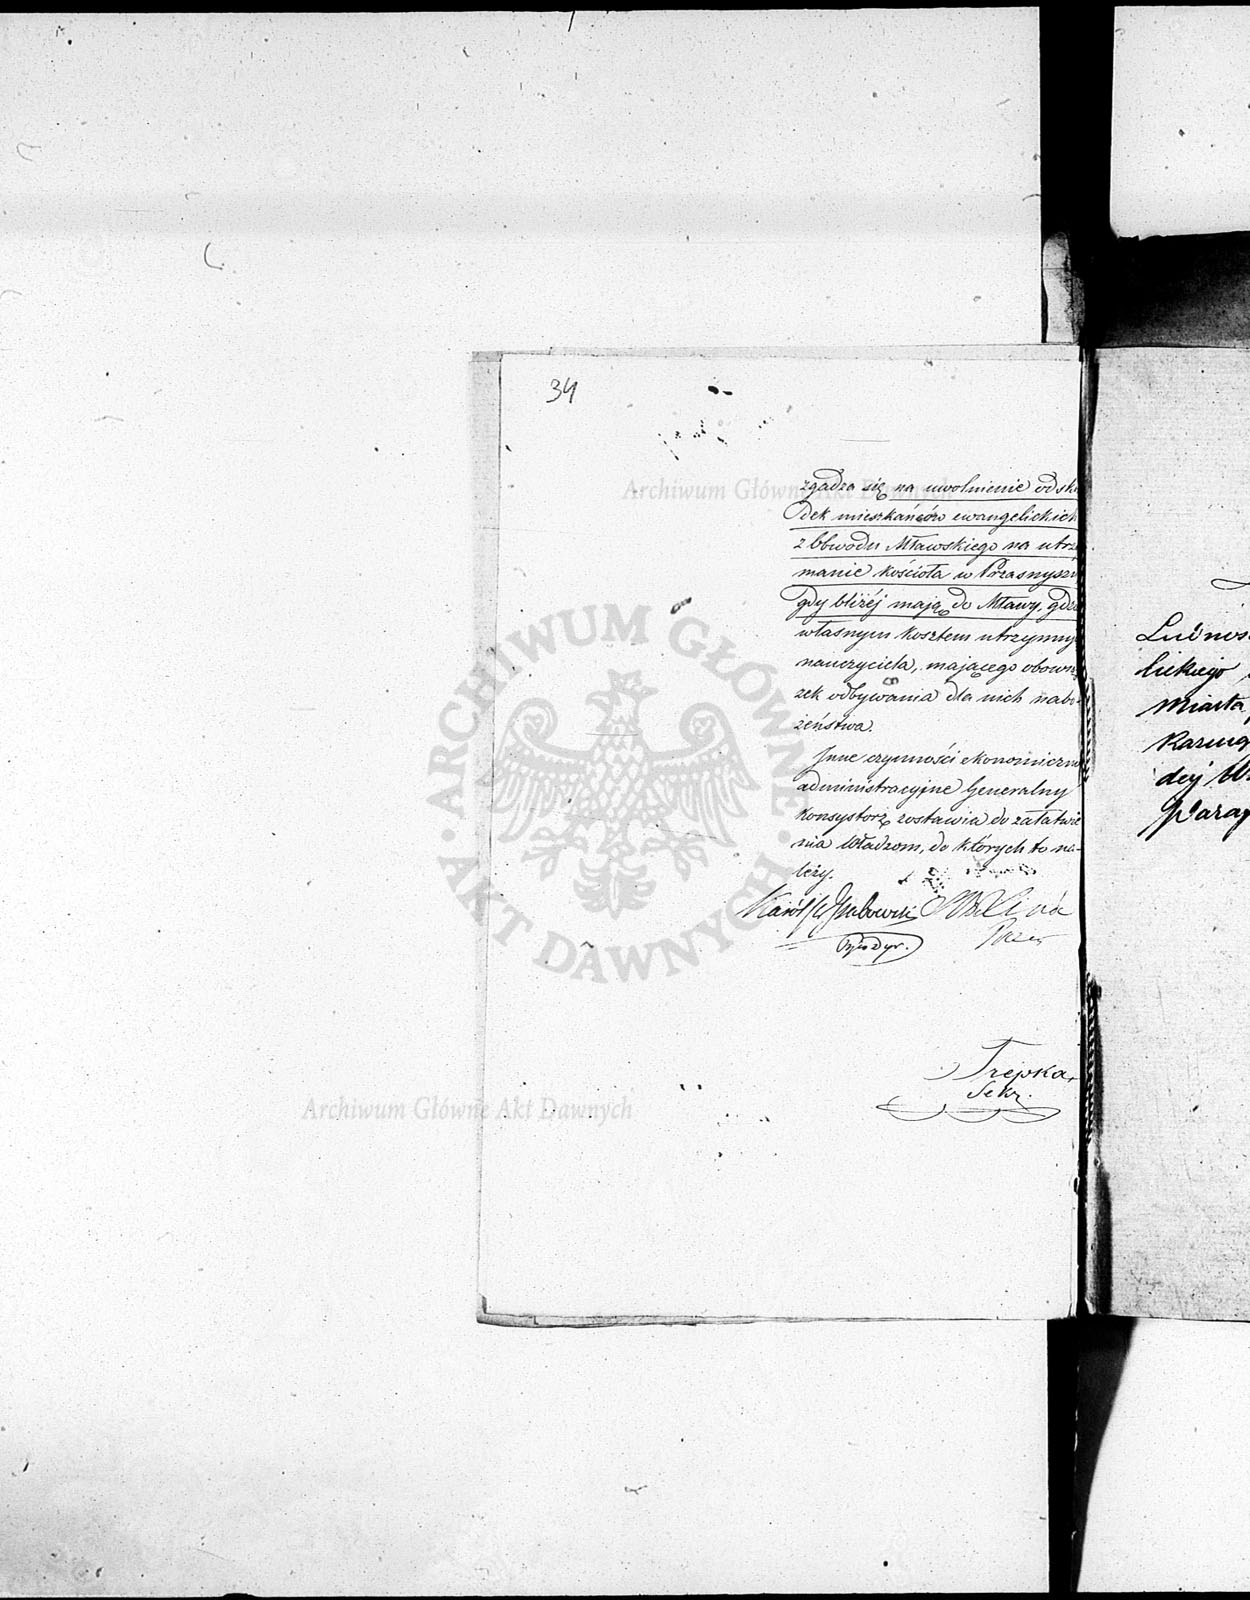 34
zgadza się na uwolnienie od skł
dek mieszkańców ewangelickich
z Obwodu Mławskiego na utrzy
manie kościoła w Przasnyszu
gdy bliżéj mają do Mławy, gdzie
własnym kosztem utrzymują
nauczyciela, mającego obowią
zek odbywania dla nich nabo-
żeństwa.
Inne czynności ekonomiczno
administracyjne Generalny
Konsystorz zostawia do załatwie
nia Władzom, do których to na-
leży.
Karól
Trepka,
Sekr.
Ludnoś
lickiego
Miasta,
dej
Paraf
Archiwum Główne Akt Dawnych
ARCHIWUM GŁÓWNE · AKT DAWNYCH ·
Archiwum Główne Akt Dawnych